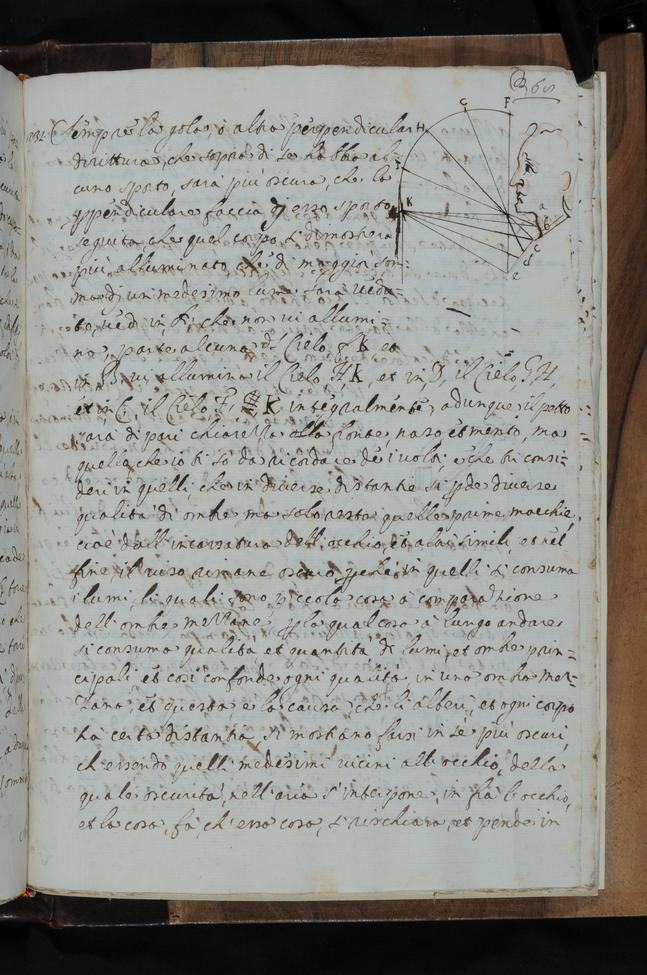 68
232. Sempre la gola, ò altra perpendicular
dirittura, che sopra di se habbia al
cuno sporto, sarà più oscura, che la
ppendiculare faccia di esso sporto
seguita che quel corpo si dimostrerà
più alluminato, che di maggior som
ma di un medesimo lume sarà uedu
to, uedi in A, che non ui allumi
na, parte alcuna del Cielo F K et
in B, ui allumina il Cielo H K, et in D, il Cielo G H,
et in C, il Cielo F, K integralmente, adunque il petto
sarà di pari chiarezza alla fronte, naso, et mento, ma
quello che io ti sò da ricordare de i uolti, è che tu consi=
deri in quelli che in diuerse distantie si pde diuerse
qualità di ombre, ma solo resta quelle prime macchie,
cioè dell' incassatura dell' occhio, et altri simili, et nel
fine il uiso rimane oscuro, perche in quelli si consuma
i lumi, li quali sono piccola cosa à comparatione
dell' ombre mezzane, p la qual cosa a lungo andare
si consuma qualità et quantità di lumi, et ombre prin=
cipali, et così confonde ogni qualità, in una ombra mez=
zana, et questa, è la causa che li alberi, et ogni corpo
hà certa distantia, si mostrano farsi in se più oscuri,
ch' essendo quelli medesimi uicini all' occhio, della
quale oscurità, nell' aria s' interpone, in frà l' occhio,
et la cosa, fà, ch' essa cosa, si rischiara, et pende in
G F
H
I
K
a
b
c
d
e